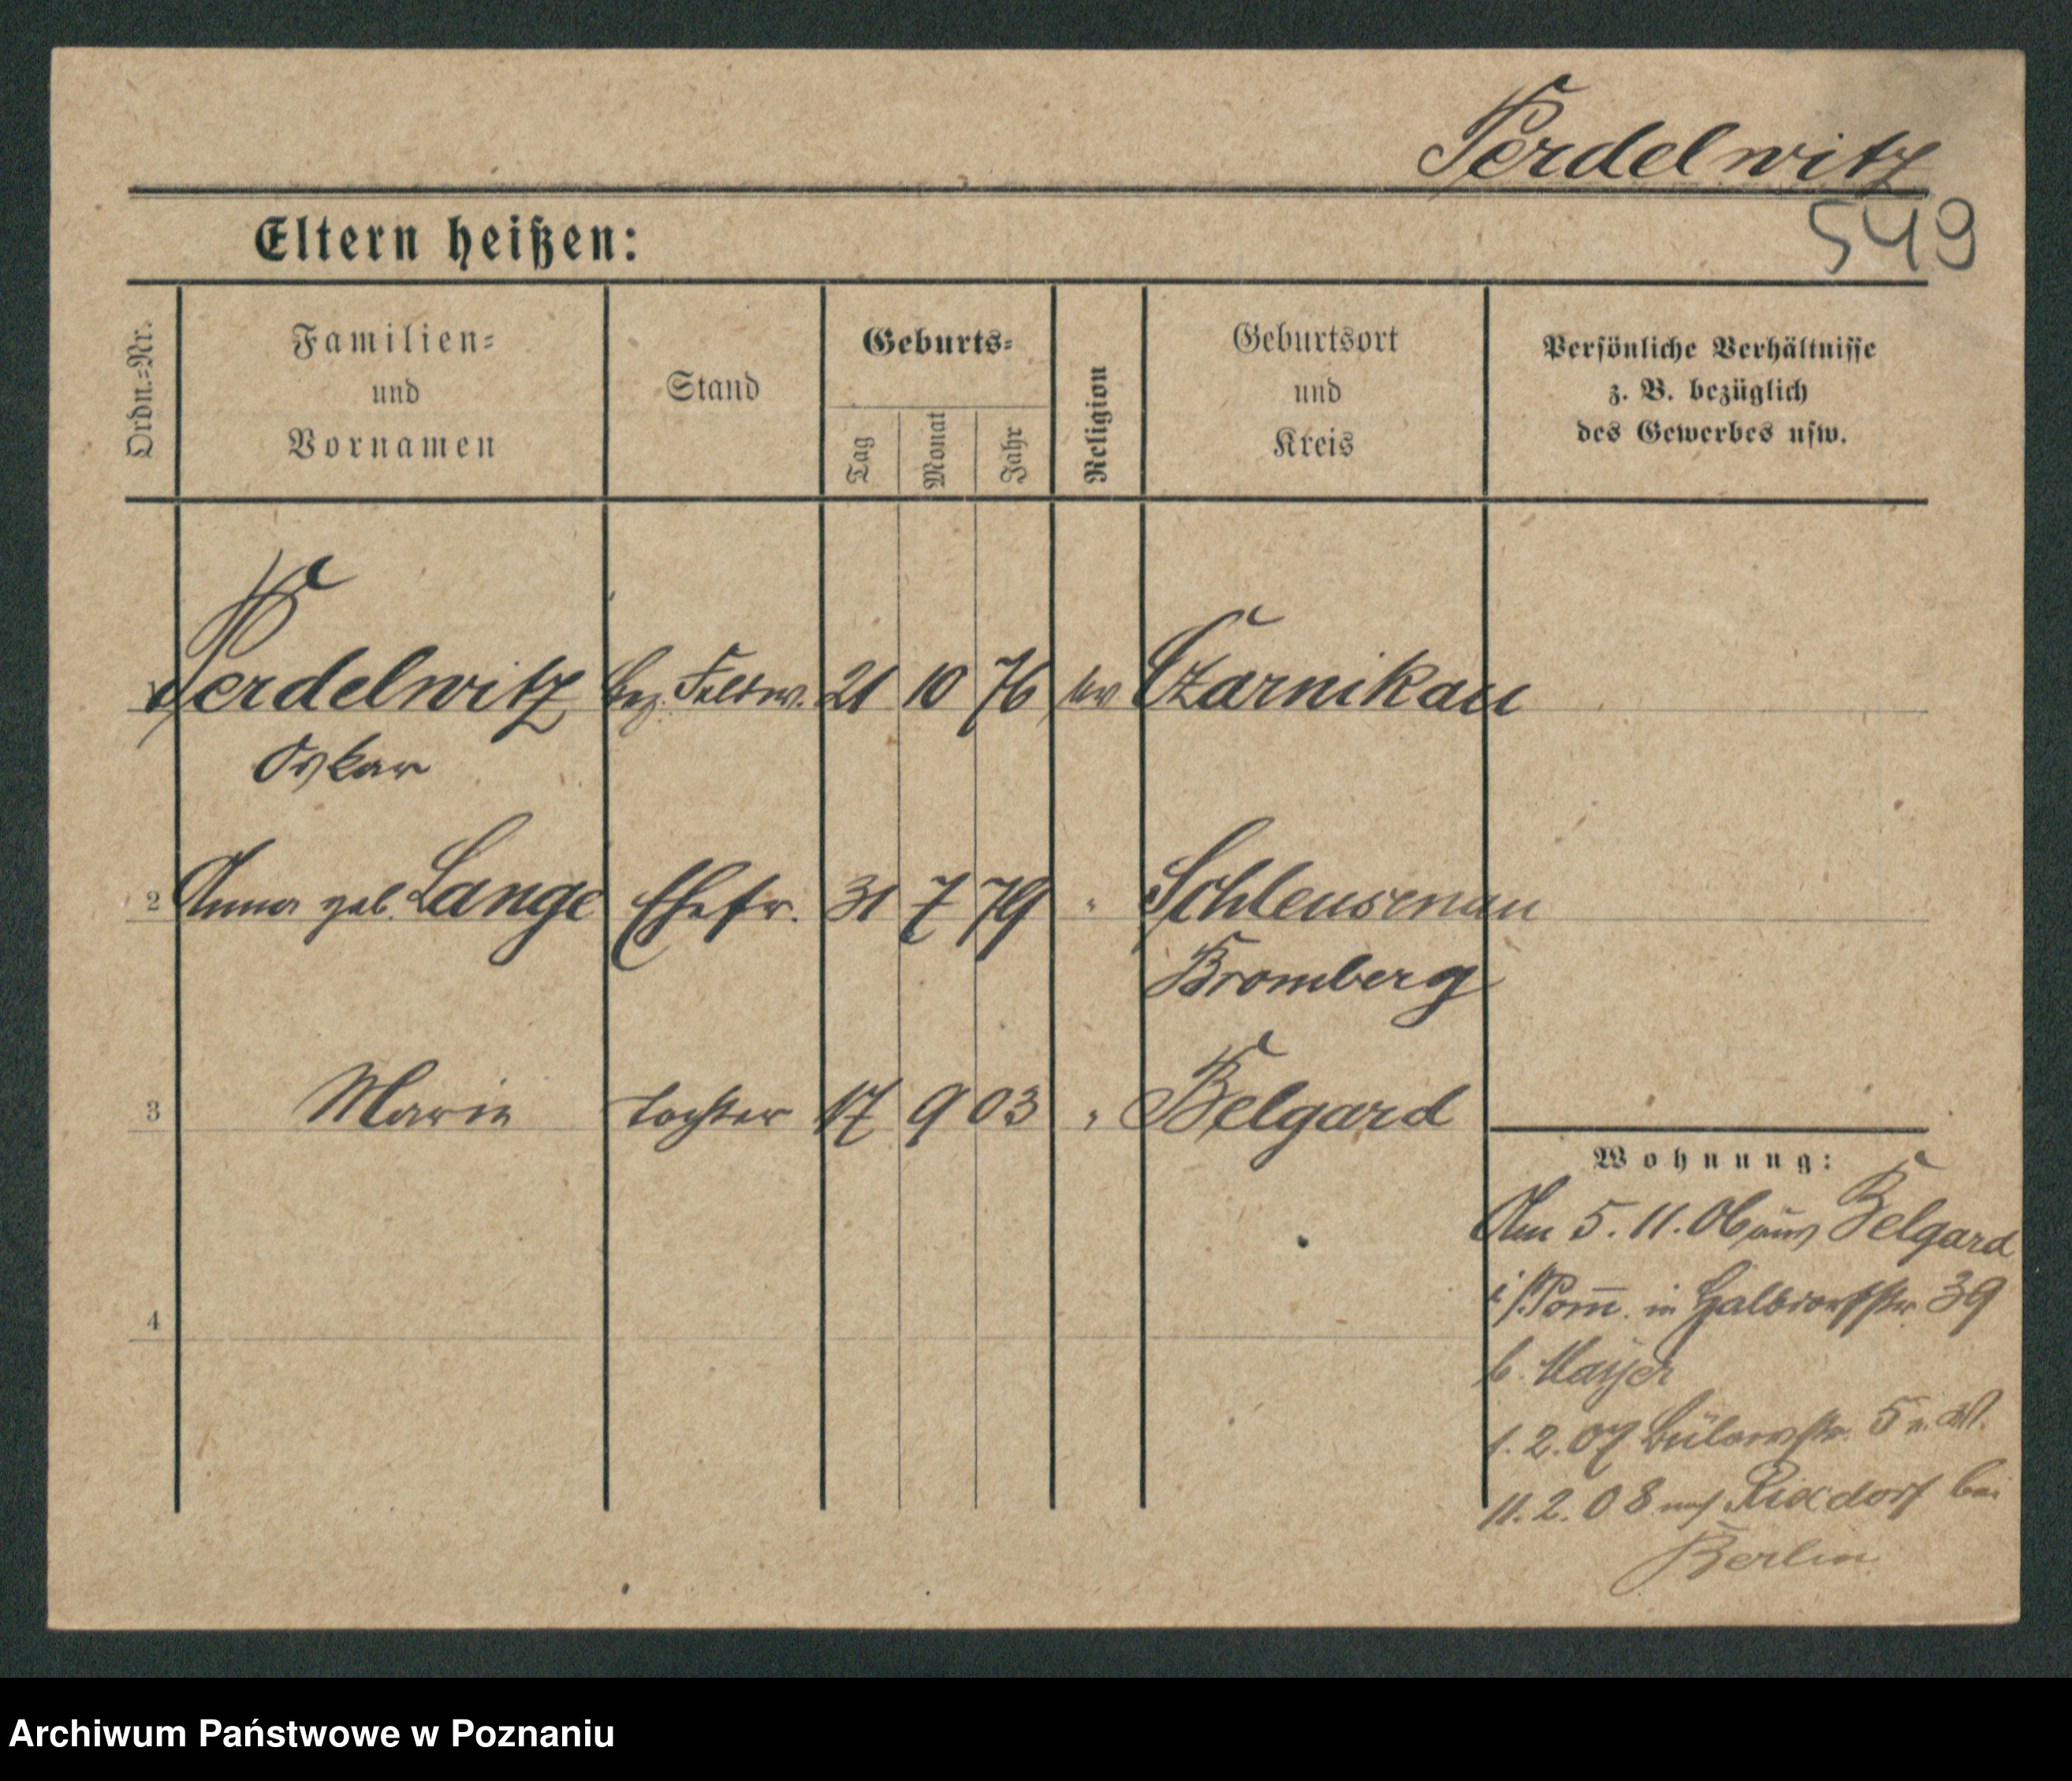 Perdelwitz
549
Eltern heißen:
Ordn.-Nr.
Familien-
und
Vornamen
Stand
Geburts-
Tag
Monat
Jahr
Religion
Geburtsort
und
Kreis
Persönliche Verhältnisse
z. B. bezüglich
des Gewerbes usw.
Perdelwitz Bez. Feldw. 21 10 76 ev Czarnikau
Oskar
2 Anna geb. Lange Ehefr. 31 7 79 " Schleusenau
Bromberg
3 Marie Tochter 17 9 03 " Belgard
Wohnung:
Am 5. 11. 06 aus Belgard
i/Pom. in 39
4
b. Mayer
1. 2. 07 Bülowstr. 5
11. 2. 08 nach Rixdorf bei
Berlin
Archiwum Państwowe w Poznaniu